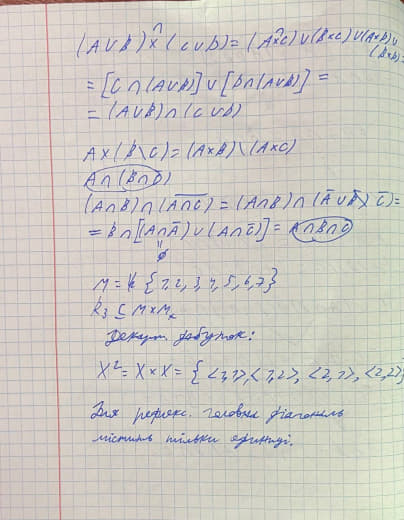 (A∪B) × (C∪D) = (A×C)∪(B×C)∪(A×D)∪
∩ ∩ (B×D)=
= [C∩(A∪B)]∪[D∩(A∪B)] =
= (A∪B)∩(C∪D)
A×(B\C)=(A×B)\(A×C)
A∩(B∩
(A∩B)∩(A∩C) = (A∩B)∩(Ā∪ C̅)=
= B∩[(A∩Ā)∪(A∩C̅)] = A∩B∩C̅
∅
M = {1,2,3,4,5,6,7}
R₃ ⊆ M×M
Декарт. добуток:
X² = X×X = {<1,1>,<1,2>,<2,1>,<2,2>}
Для рефлекс. головна діагональ
містить тільки одиниці.